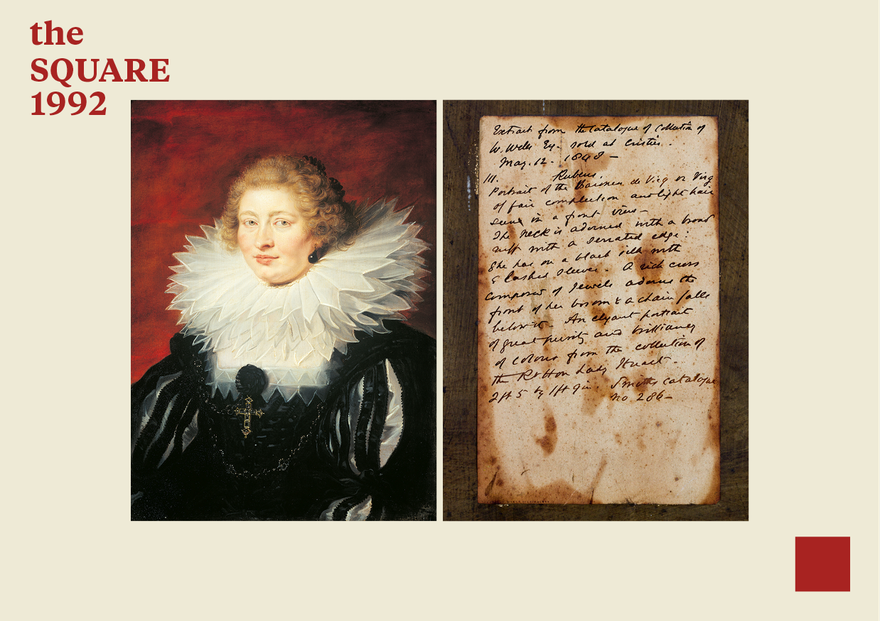 the
SQUARE
1992
Extract from the Catalogue of Collection of
W. Wells Esq. sold at Cristies.
May. 12. 1848 —
111. Rubens.
Portrait of the Baroness de Vicq or Vicq
of fair complection and light hair
seen in a front view —
The neck is adorned with a broad
ruff with a serrated edge:
She has on a black silk with
slashed sleeves. A rich cross
composed of Jewels adorns the
front of her bosom & a chain falls
below it. An elegant portrait
of great purity and brilliancy
of colour from the collection of
the Rt Hon Lady Stuart.
2ft 5 by 1ft 9in. Smiths catalogue
no 286 —